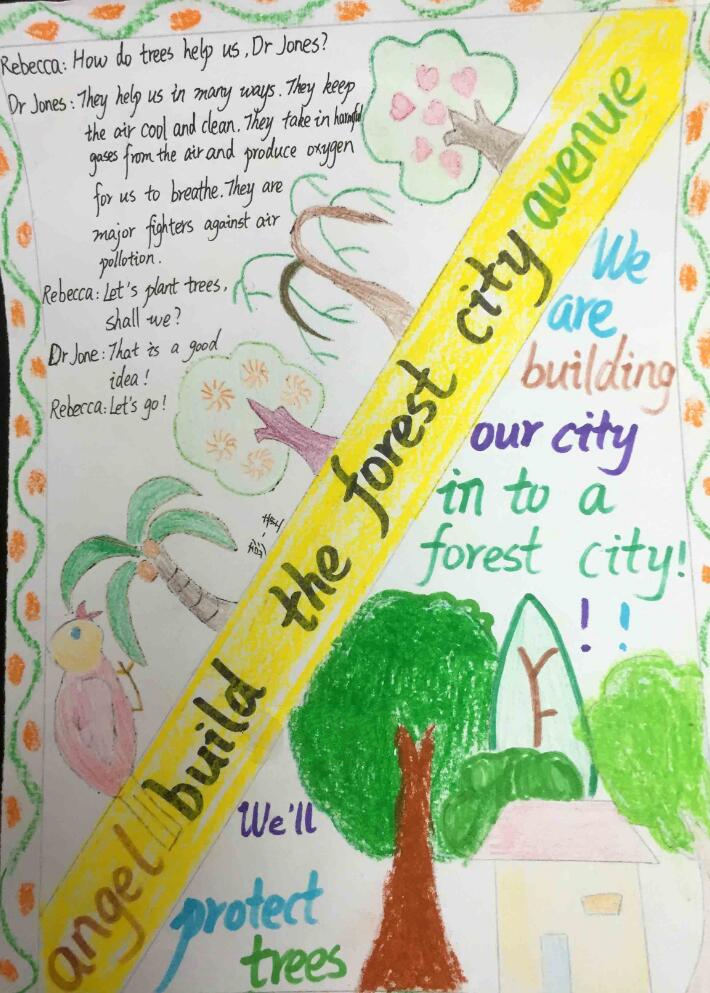 Rebecca: How do trees help us, Dr Jones?
Dr Jones: They help us in many ways. They keep
the air cool and clean. They take in harmful
gases from the air and produce oxygen
for us to breathe. They are
major fighters against air
pollotion.
Rebecca: Let's plant trees,
shall we?
Dr Jone: That is a good
idea!
Rebecca: Let's go!
angel build the forest city avenue
We
are
building
our city
in to a
forest city!
! !
We'll
protect
trees